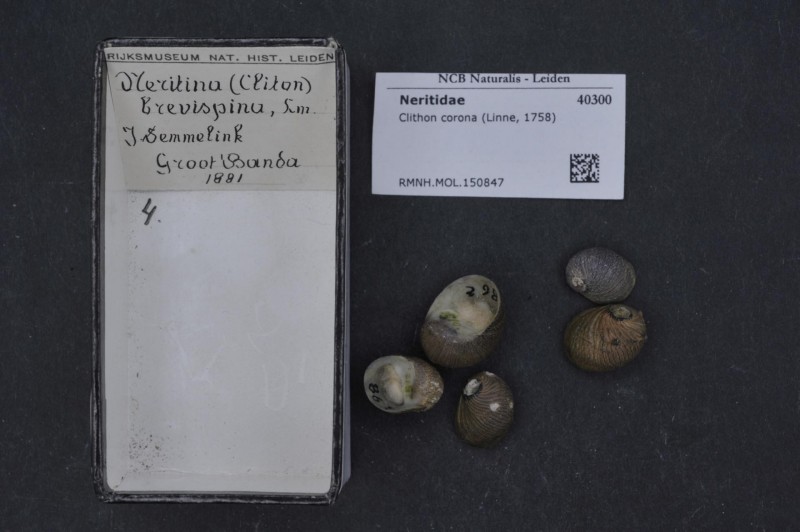 RIJKSMUSEUM NAT. HIST. LEIDEN
Neritina (Cliton)
brevispina, Lm.
J Semmelink
Groot Banda
1881
4.
NCB Naturalis - Leiden
Neritidae 40300
Clithon corona (Linne, 1758)
RMNH.MOL.150847